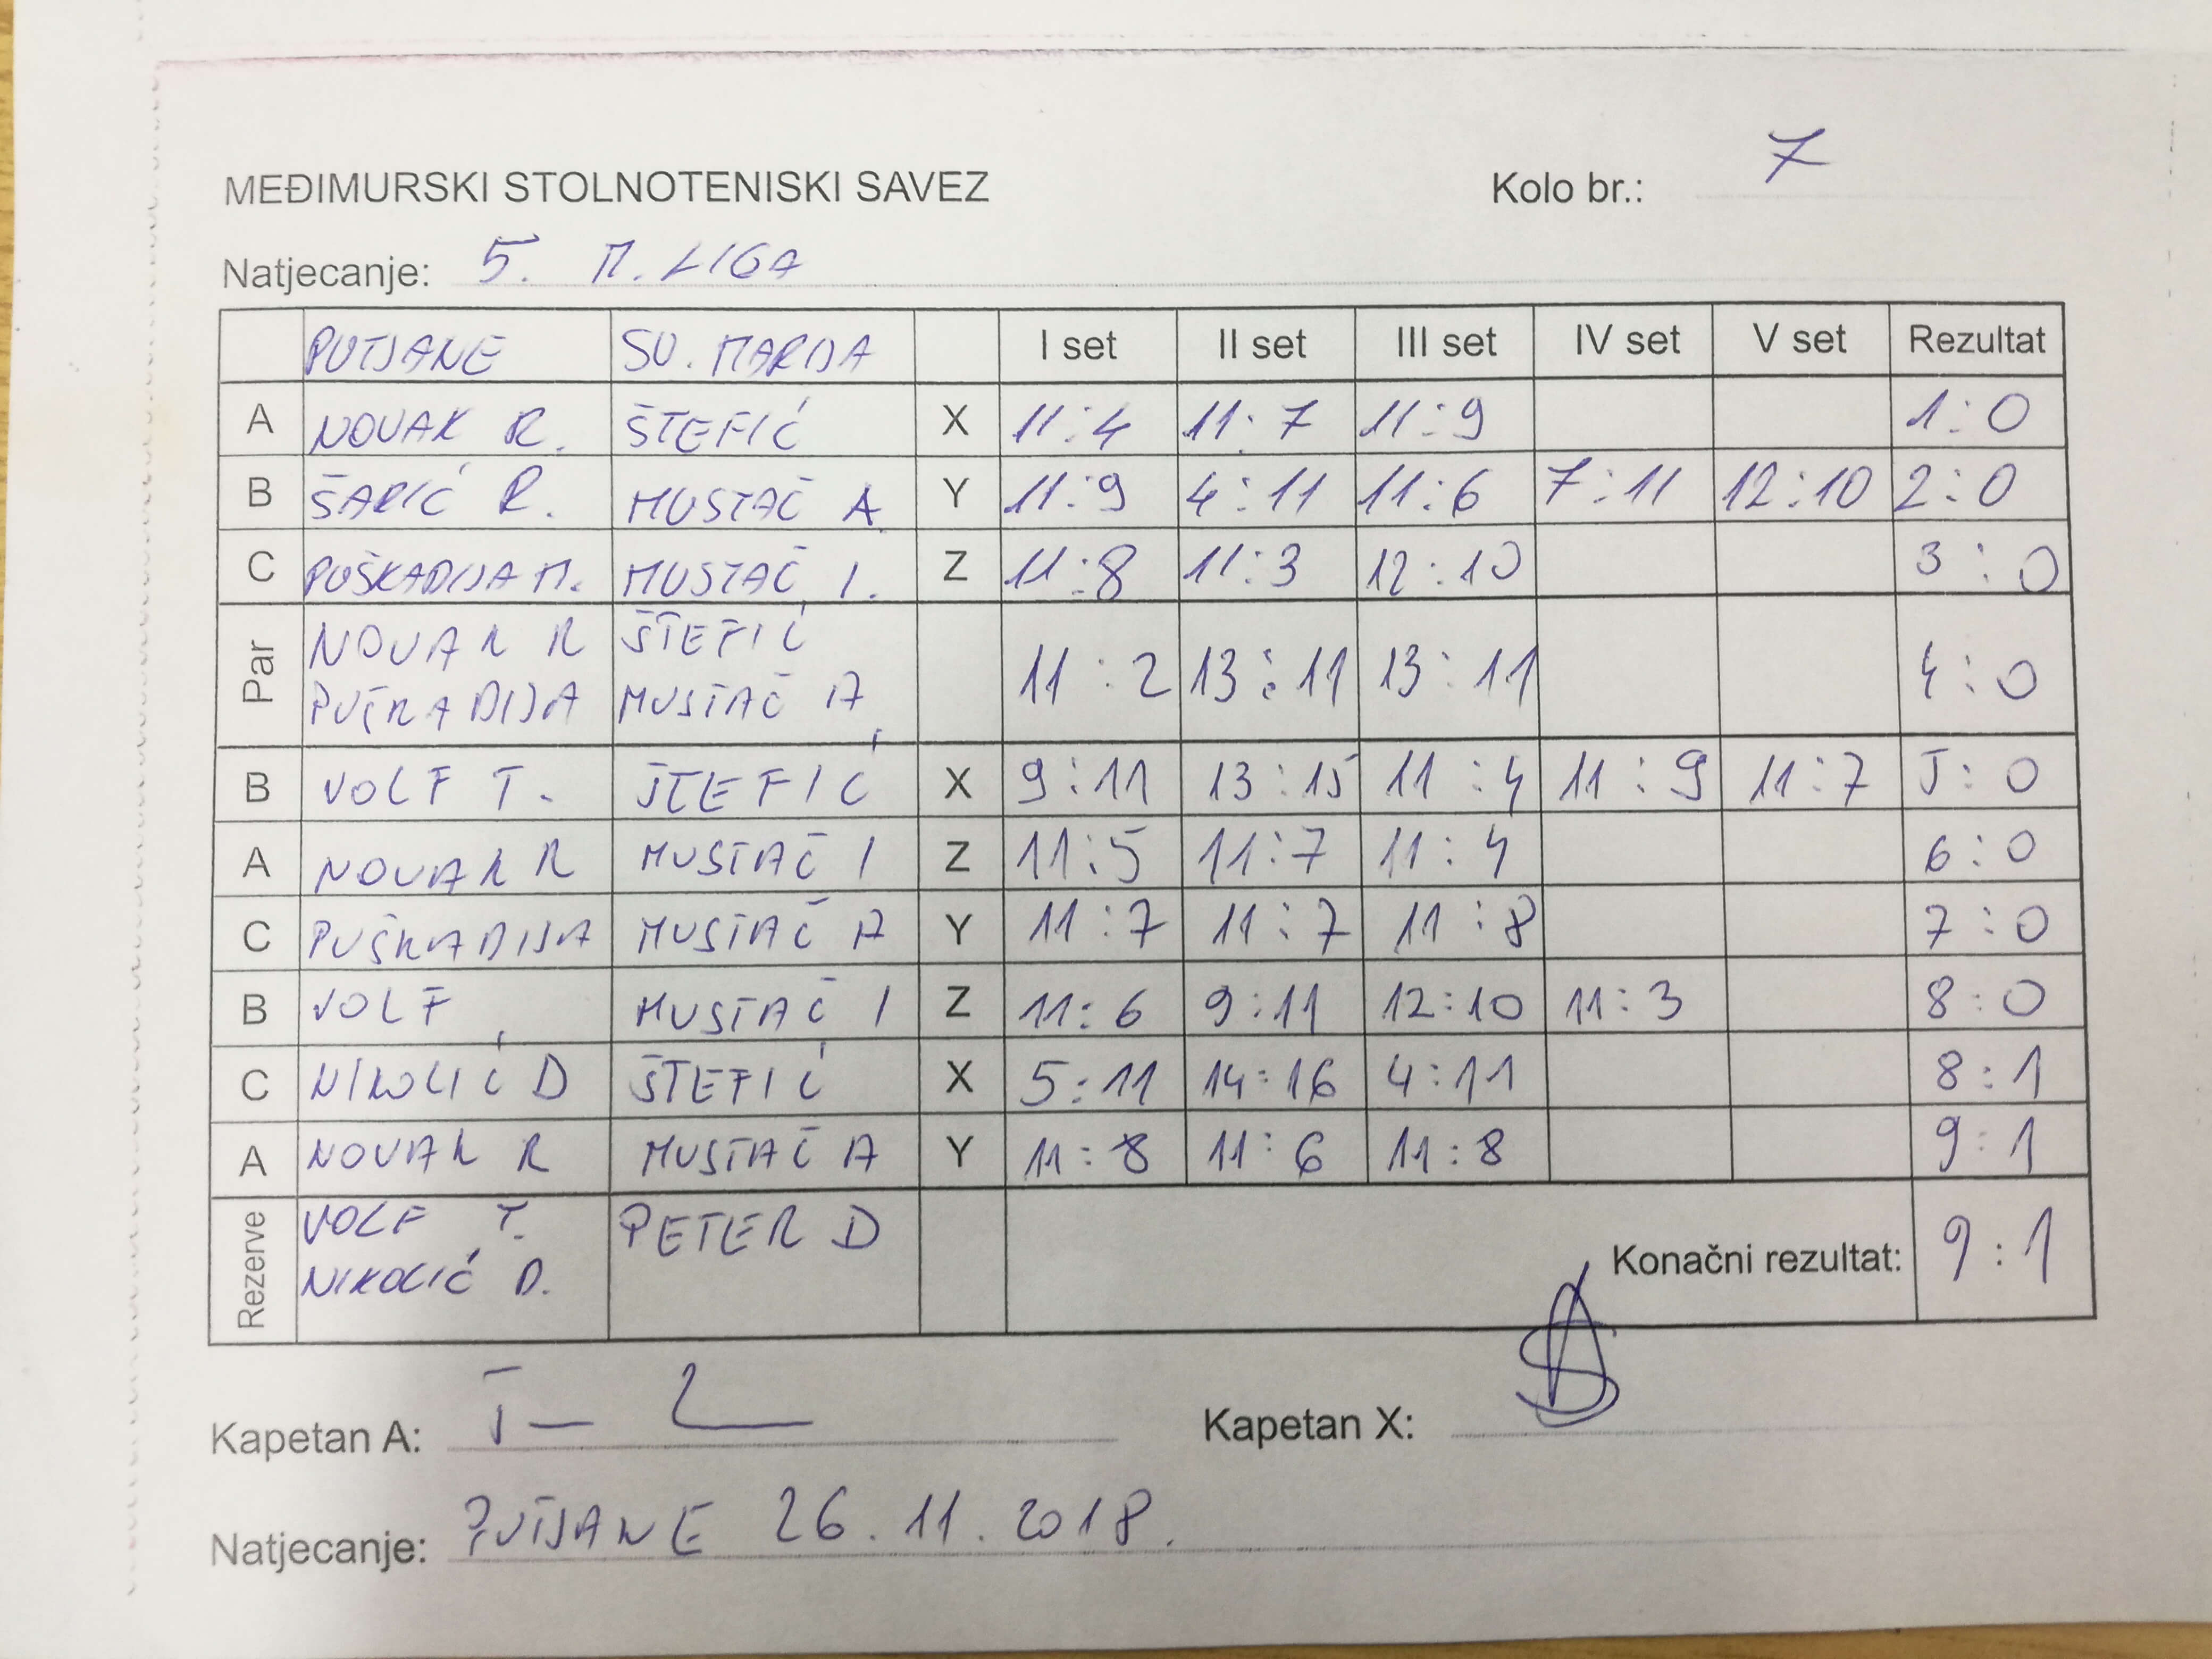 MEĐIMURSKI STOLNOTENISKI SAVEZ Kolo br.: 7
Natjecanje: 5. M. LIGA
PUTJANE SV. MARIJA I set II set III set IV set V set Rezultat
A NOVAK R. ŠTEFIĆ X 11:4 11:7 11:9 1:0
B ŠARIĆ R. MUSTAČ A. Y 11:9 4:11 11:6 7:11 12:10 2:0
C PUŠKADIJA M. MUSTAČ I. Z 11:8 11:3 12:10 3:0
Par NOVAK R ŠTEFIĆ 11:2 13:11 13:11 4:0
PUŠKADIJA MUSTAČ A
B VOLF T. ŠTEFIĆ X 9:11 13:15 11:4 11:9 11:7 5:0
A NOVAK R MUSTAČ I Z 11:5 11:7 11:4 6:0
C PUŠKADIJA MUSTAČ A Y 11:7 11:7 11:8 7:0
B VOLF MUSTAČ I Z 11:6 9:11 12:10 11:3 8:0
C NIKOLIĆ D ŠTEFIĆ X 5:11 14:16 4:11 8:1
A NOVAK R MUSTAČ A Y 11:8 11:6 11:8 9:1
Rezerve VOLF T. PETER D
NIKOLIĆ D.
Konačni rezultat: 9:1
Kapetan A: Kapetan X:
Natjecanje: PUTJANE 26.11.2018.